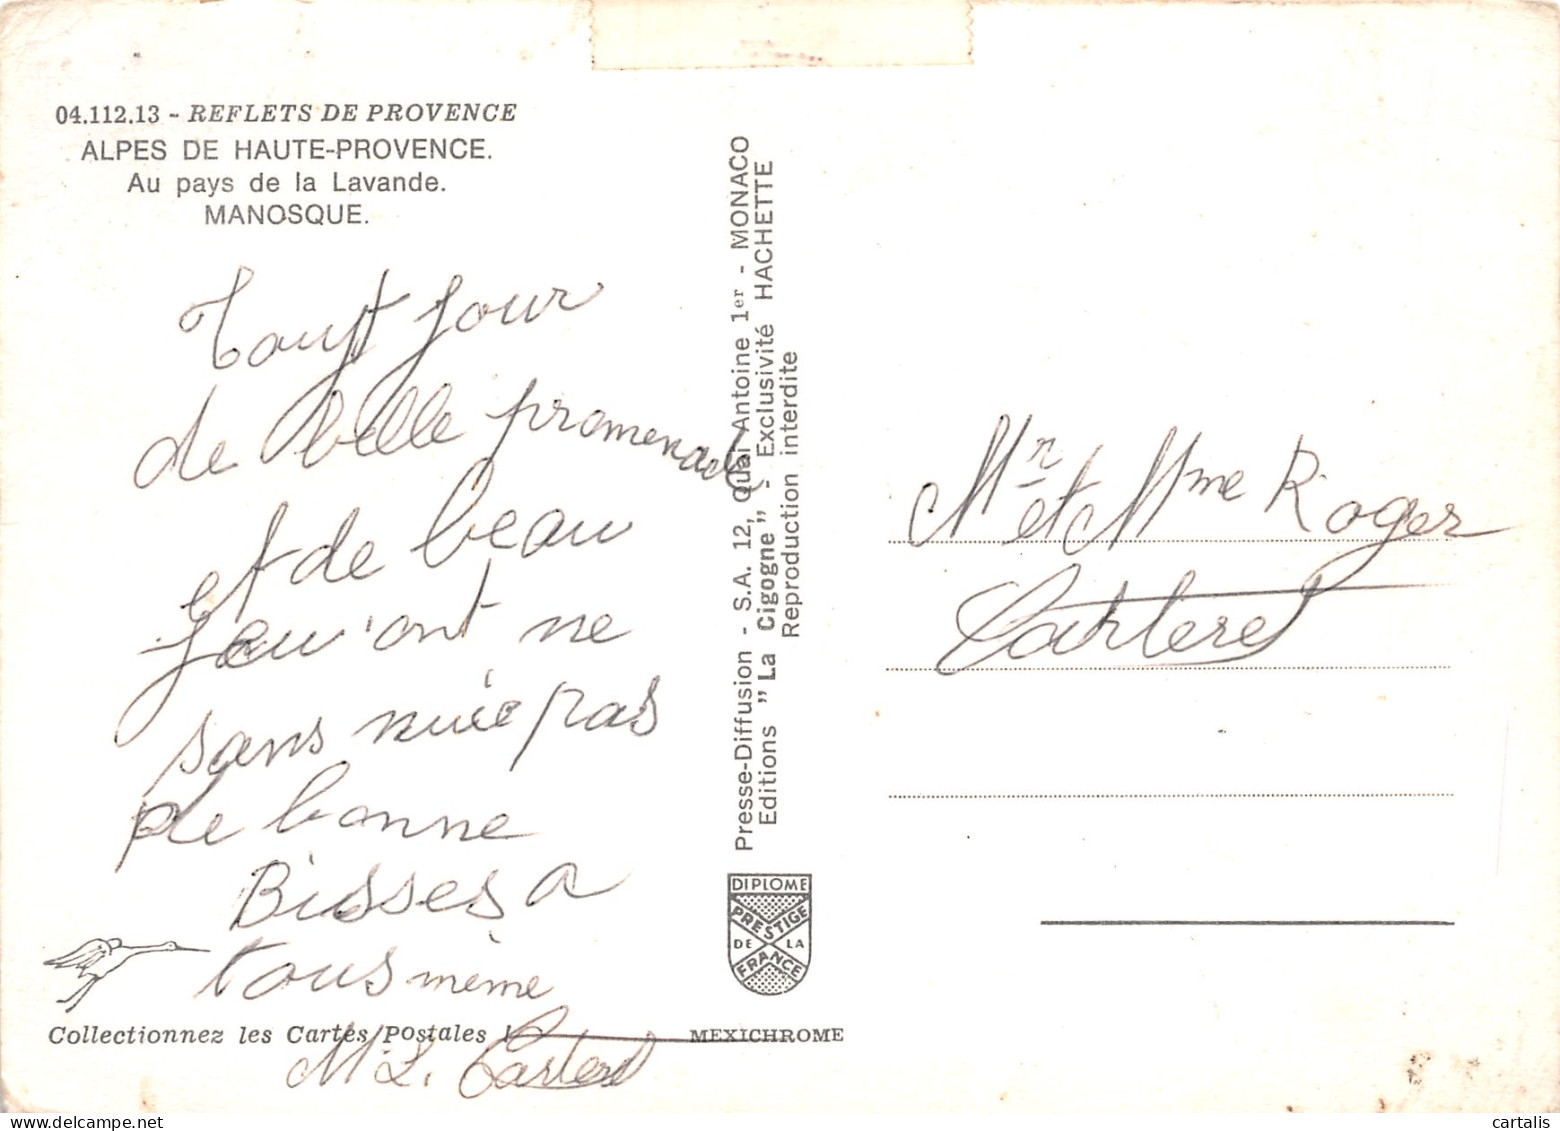 04.112.13 - REFLETS DE PROVENCE
ALPES DE HAUTE-PROVENCE.
Au pays de la Lavande.
MANOSQUE.
jour
de belle promenade
et de beau
ne
sans pas
de bonne
Bisses a
tous mème
M. L. Carteret
Collectionnez les Cartes Postales !
MEXICHROME
Presse-Diffusion - S.A. 12, Quai Antoine 1er - MONACO
Editions "La Cigogne" - Exclusivité HACHETTE
Reproduction interdite
DIPLOME
PRESTIGE
DE LA
FRANCE
Mr et Mme Roger
Carteret
cartalis